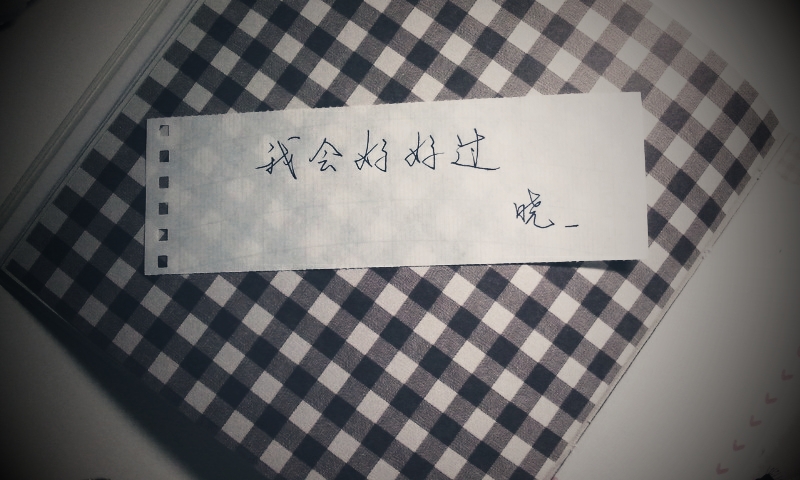 我会好好过
晓_